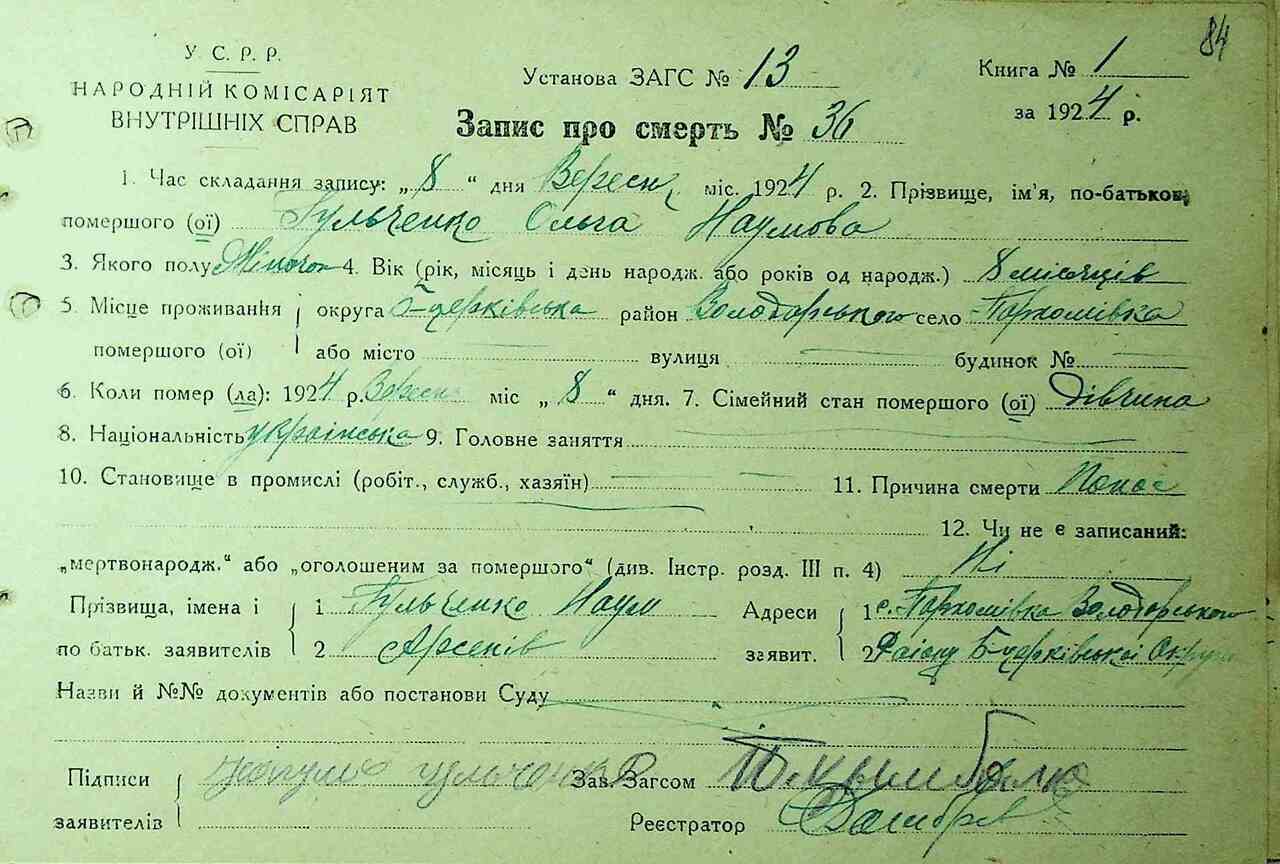 84
У. С. Р. Р.
НАРОДНІЙ КОМІСАРІЯТ
ВНУТРІШНІХ СПРАВ
Установа ЗАГС № 13
Книга № 1
за 1924 р.
Запис про смерть № 36
1. Час складання запису: „ 8 “ дня Вересн міс. 1924 р. 2. Прізвище, ім'я, по-батькові
помершого (ої) Гульченко Ольга Наумова
3. Якого полу Жіночого 4. Вік (рік, місяць і день народж. або років од народж.) 8 місяців
5. Місце проживання округа Б-церківська район Володарського село Пархомівка
помершого (ої) або місто вулиця будинок №
6. Коли помер (ла): 1924 р. Вересн міс „ 8 “ дня. 7. Сімейний стан помершого (ої) дівчина
8. Національність українська 9. Головне заняття
10. Становище в промислі (робіт., служб., хазяїн) 11. Причина смерти Понос
12. Чи не є записаний:
„мертвонародж.“ або „оголошеним за помершого“ (див. Інстр. розд. III п. 4) Ні
Прізвища, імена і 1 Гульченко Наум Адреси 1 с. Пархомівка Володорського
по батьк. заявителів 2 Арсенів заявит. 2 Району Б-церківської Округи
Назви й №№ документів або постанови Суду
Підписи Гульченко Зав. Загсом
заявителів Реєстратор